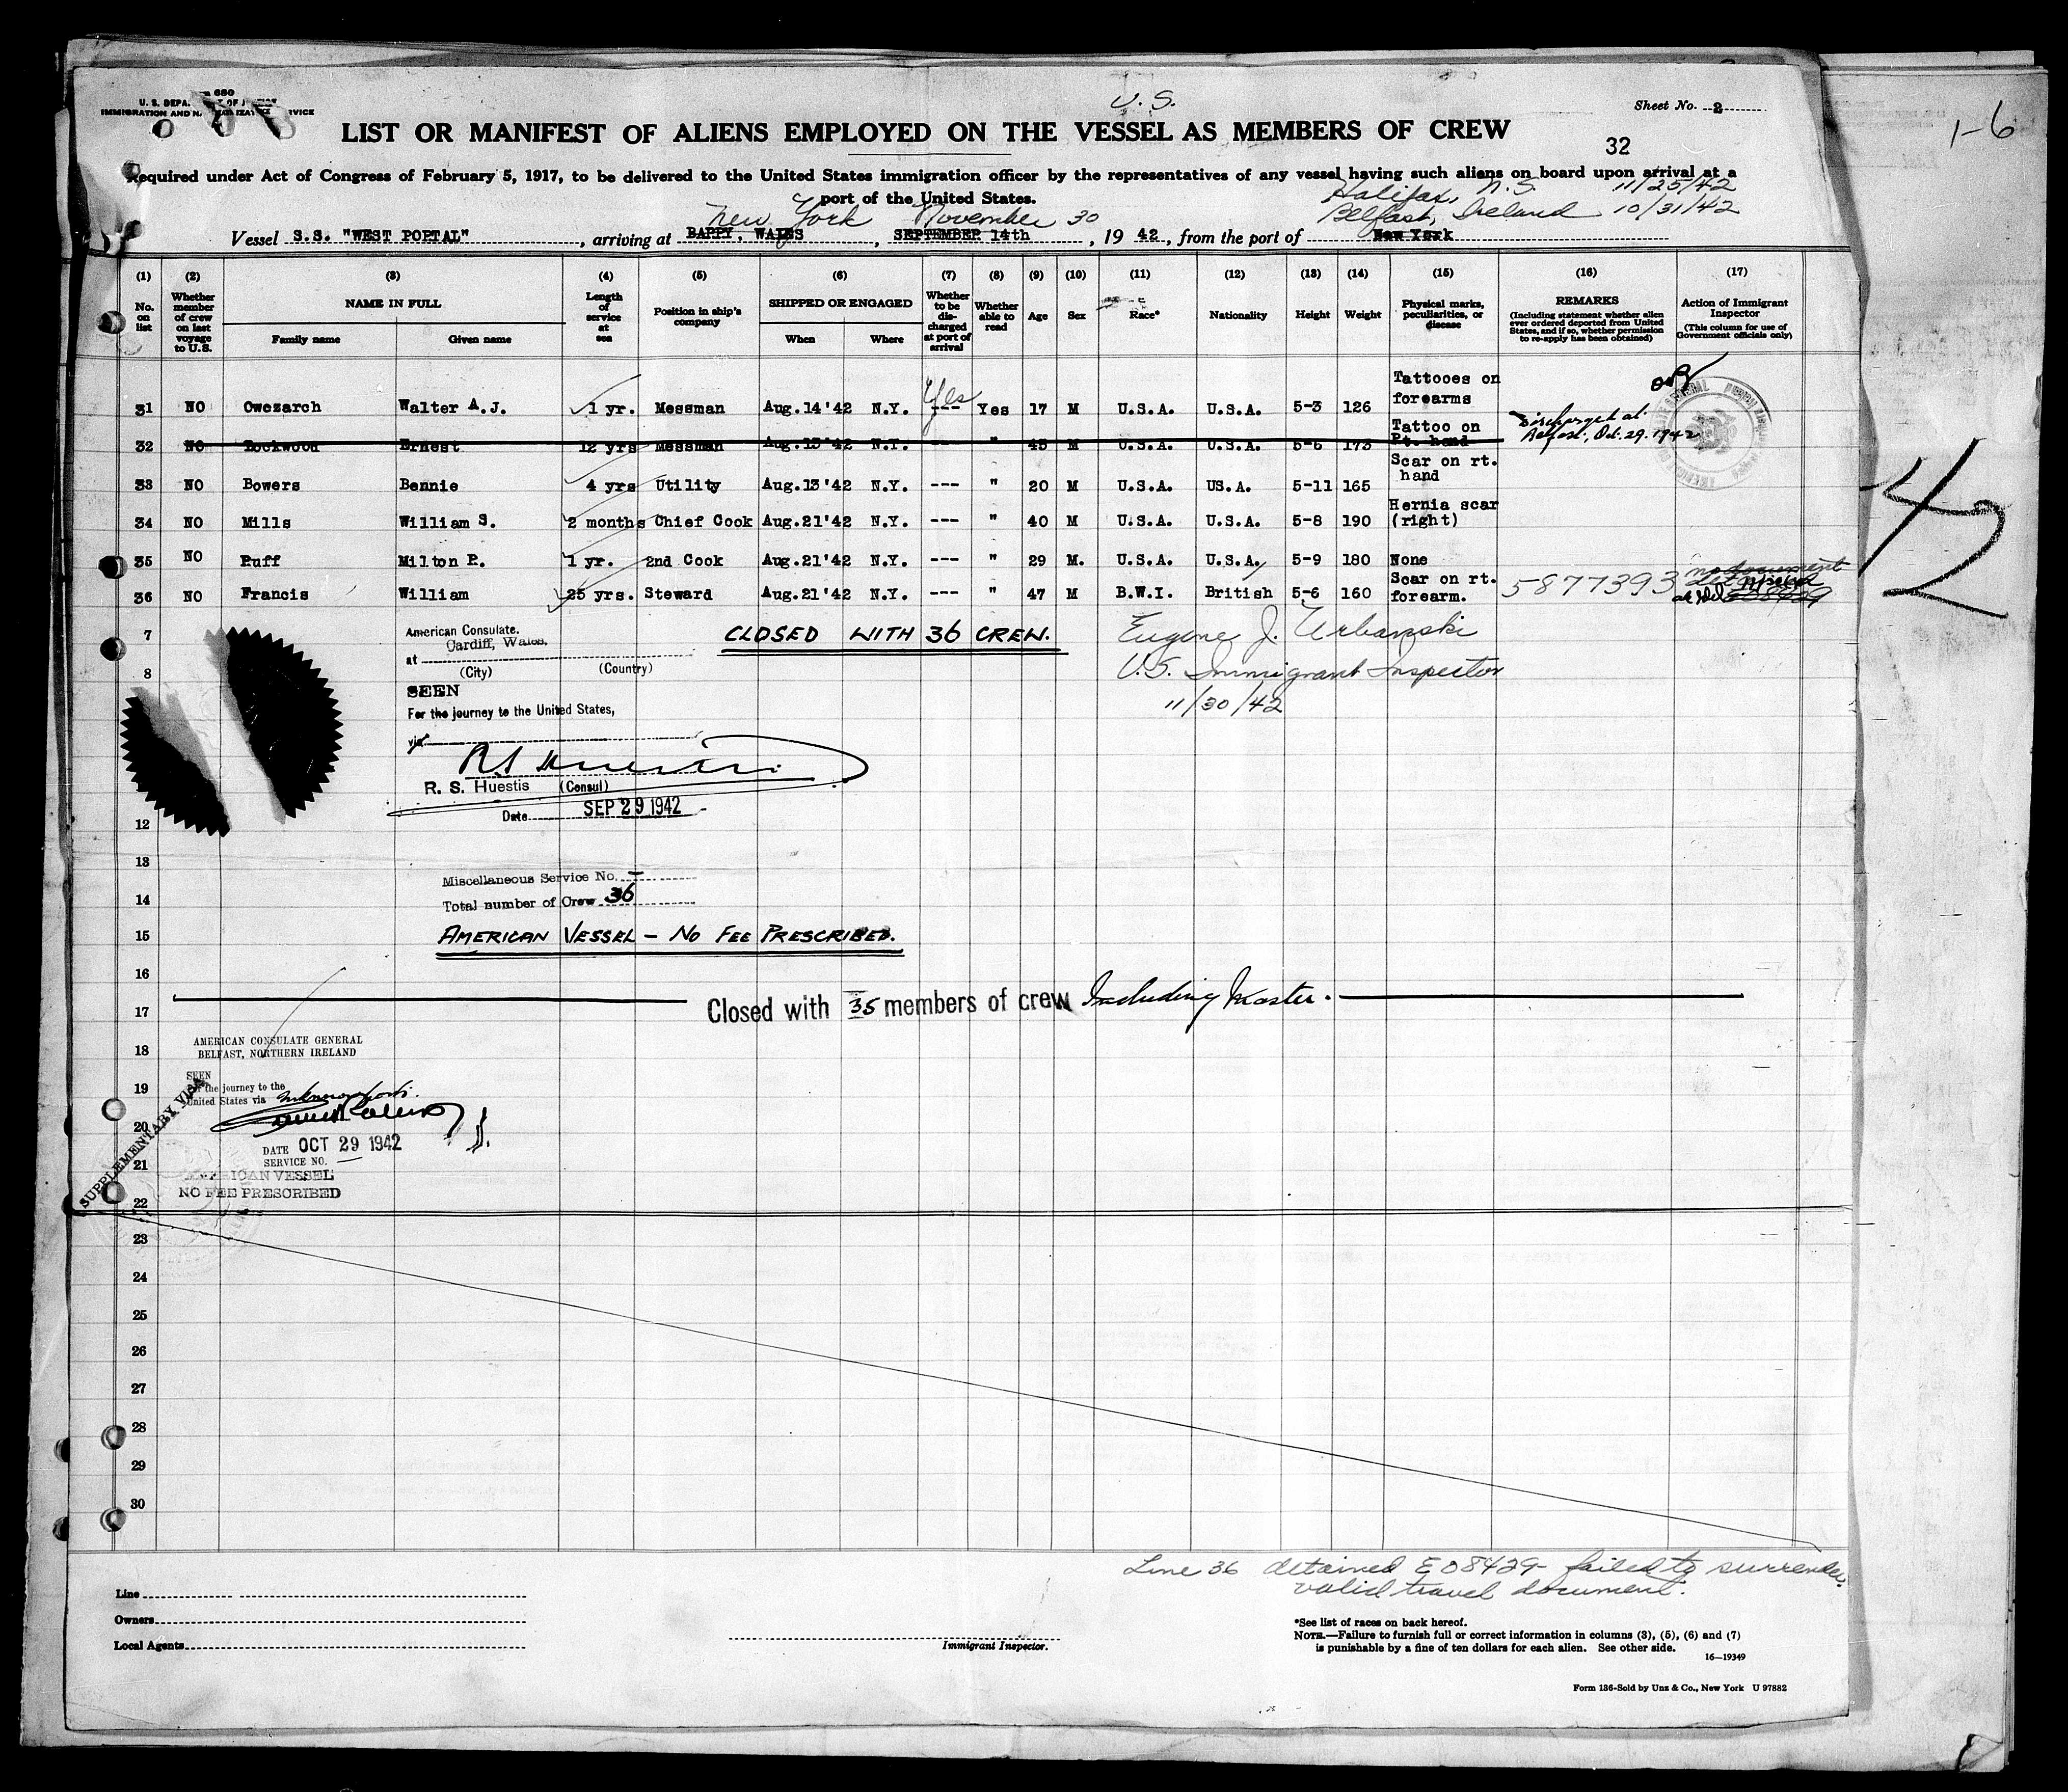 680
U. S. DEPA OF J
IMMIGRATION AND N SERVICE
U.S.
Sheet No. 2
1-6
LIST OR MANIFEST OF ALIENS EMPLOYED ON THE VESSEL AS MEMBERS OF CREW
32
Required under Act of Congress of February 5, 1917, to be delivered to the United States immigration officer by the representatives of any vessel having such aliens on board upon arrival at a
port of the United States.
Halifax, N.S. 11/25/42
New York November 30 Belfast, Ireland 10/31/42
Vessel S.S. "WEST PORTAL", arriving at BARRY, WALES, SEPTEMBER 14th, 19 42, from the port of New York
(1) (2) (3) (4) (5) (6) (7) (8) (9) (10) (11) (12) (13) (14) (15) (16) (17)
No. on list
Whether member of crew on last voyage to U.S.
NAME IN FULL
Family name Given name
Length of service at sea
Position in ship's company
SHIPPED OR ENGAGED
When Where
Whether to be discharged at port of arrival
Whether able to read
Age
Sex
Race*
Nationality
Height
Weight
Physical marks, peculiarities, or disease
REMARKS
(Including statement whether alien ever ordered deported from United States, and if so, whether permission to re-apply has been obtained)
Action of Immigrant Inspector
(This column for use of Government officials only)
31 NO Owezarch Walter A.J. 1 yr. Messman Aug.14'42 N.Y. --- Yes Yes 17 M U.S.A. U.S.A. 5-3 126 Tattooes on forearms
32 NO Rockwood Ernest 12 yrs Messman Aug.13'42 N.Y. --- " 45 M U.S.A. U.S.A. 5-6 173 Tattoo on Rt. hand Discharged at Belfast, Oct. 29. 1942
33 NO Bowers Bennie 4 yrs Utility Aug.13'42 N.Y. --- " 20 M U.S.A. US.A. 5-11 165 Scar on rt. hand
34 NO Mills William S. 2 months Chief Cook Aug.21'42 N.Y. --- " 40 M U.S.A. U.S.A. 5-8 190 Hernia scar (right)
35 NO Ruff Milton P. 1 yr. 2nd Cook Aug.21'42 N.Y. --- " 29 M. U.S.A. U.S.A. 5-9 180 None
36 NO Francis William 25 yrs. Steward Aug.21'42 N.Y. --- " 47 M B.W.I. British 5-6 160 Scar on rt. forearm. 5877393 no document
42
7
CLOSED WITH 36 CREW.
Eugene J. Urbanski
U.S. Immigrant Inspector
11/30/42
American Consulate.
Cardiff, Wales.
at
(City) (Country)
8
SEEN
For the journey to the United States,
via
R. S. Huestis (Consul)
Date SEP 29 1942
12
13
Miscellaneous Service No. -
14
Total number of Crew 36
15
AMERICAN VESSEL - NO FEE PRESCRIBED.
16
17
Closed with 35 members of crew Including Master.
AMERICAN CONSULATE GENERAL
18
BELFAST, NORTHERN IRELAND
SEEN
19
For the journey to the
United States via
20
DATE OCT 29 1942
SERVICE NO. —
21
AMERICAN VESSEL
NO FEE PRESCRIBED
SUPPLEMENTARY VISA
22
23
24
25
26
27
28
29
30
Line 36 detained E 08429 failed to surrender
valid travel document.
Line
Owners
Local Agents
Immigrant Inspector.
*See list of races on back hereof.
NOTE.—Failure to furnish full or correct information in columns (3), (5), (6) and (7)
is punishable by a fine of ten dollars for each alien. See other side.
16—19349
Form 136-Sold by Unz & Co., New York U 97882